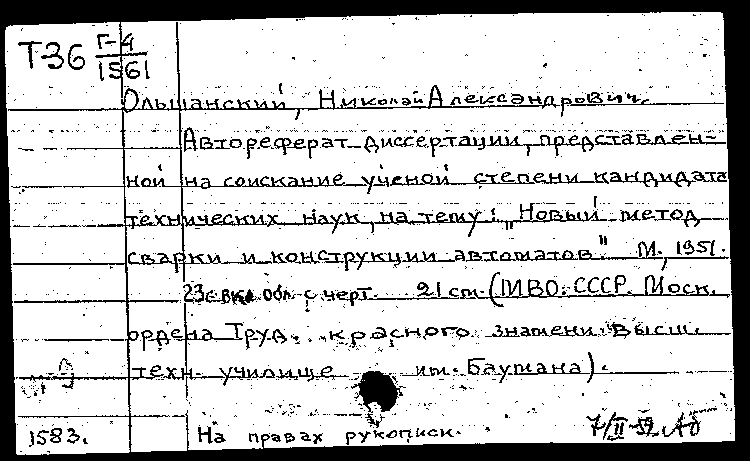 Т-36 Г-4
1561
Ольшанский, Николай Александрович.
Автореферат диссертации, представлен-
ной на соискание ученой степени кандидата
технических наук, на тему: „Новый метод
сварки и конструкции автоматов." М., 1951.
23с. вкл. обл. с черт. 21 см. (МВО. СССР. Моск.
ордена Труд. красного знамени высш.
техн. училище им. Баумана).
1583. На правах рукописи. 7/II-52